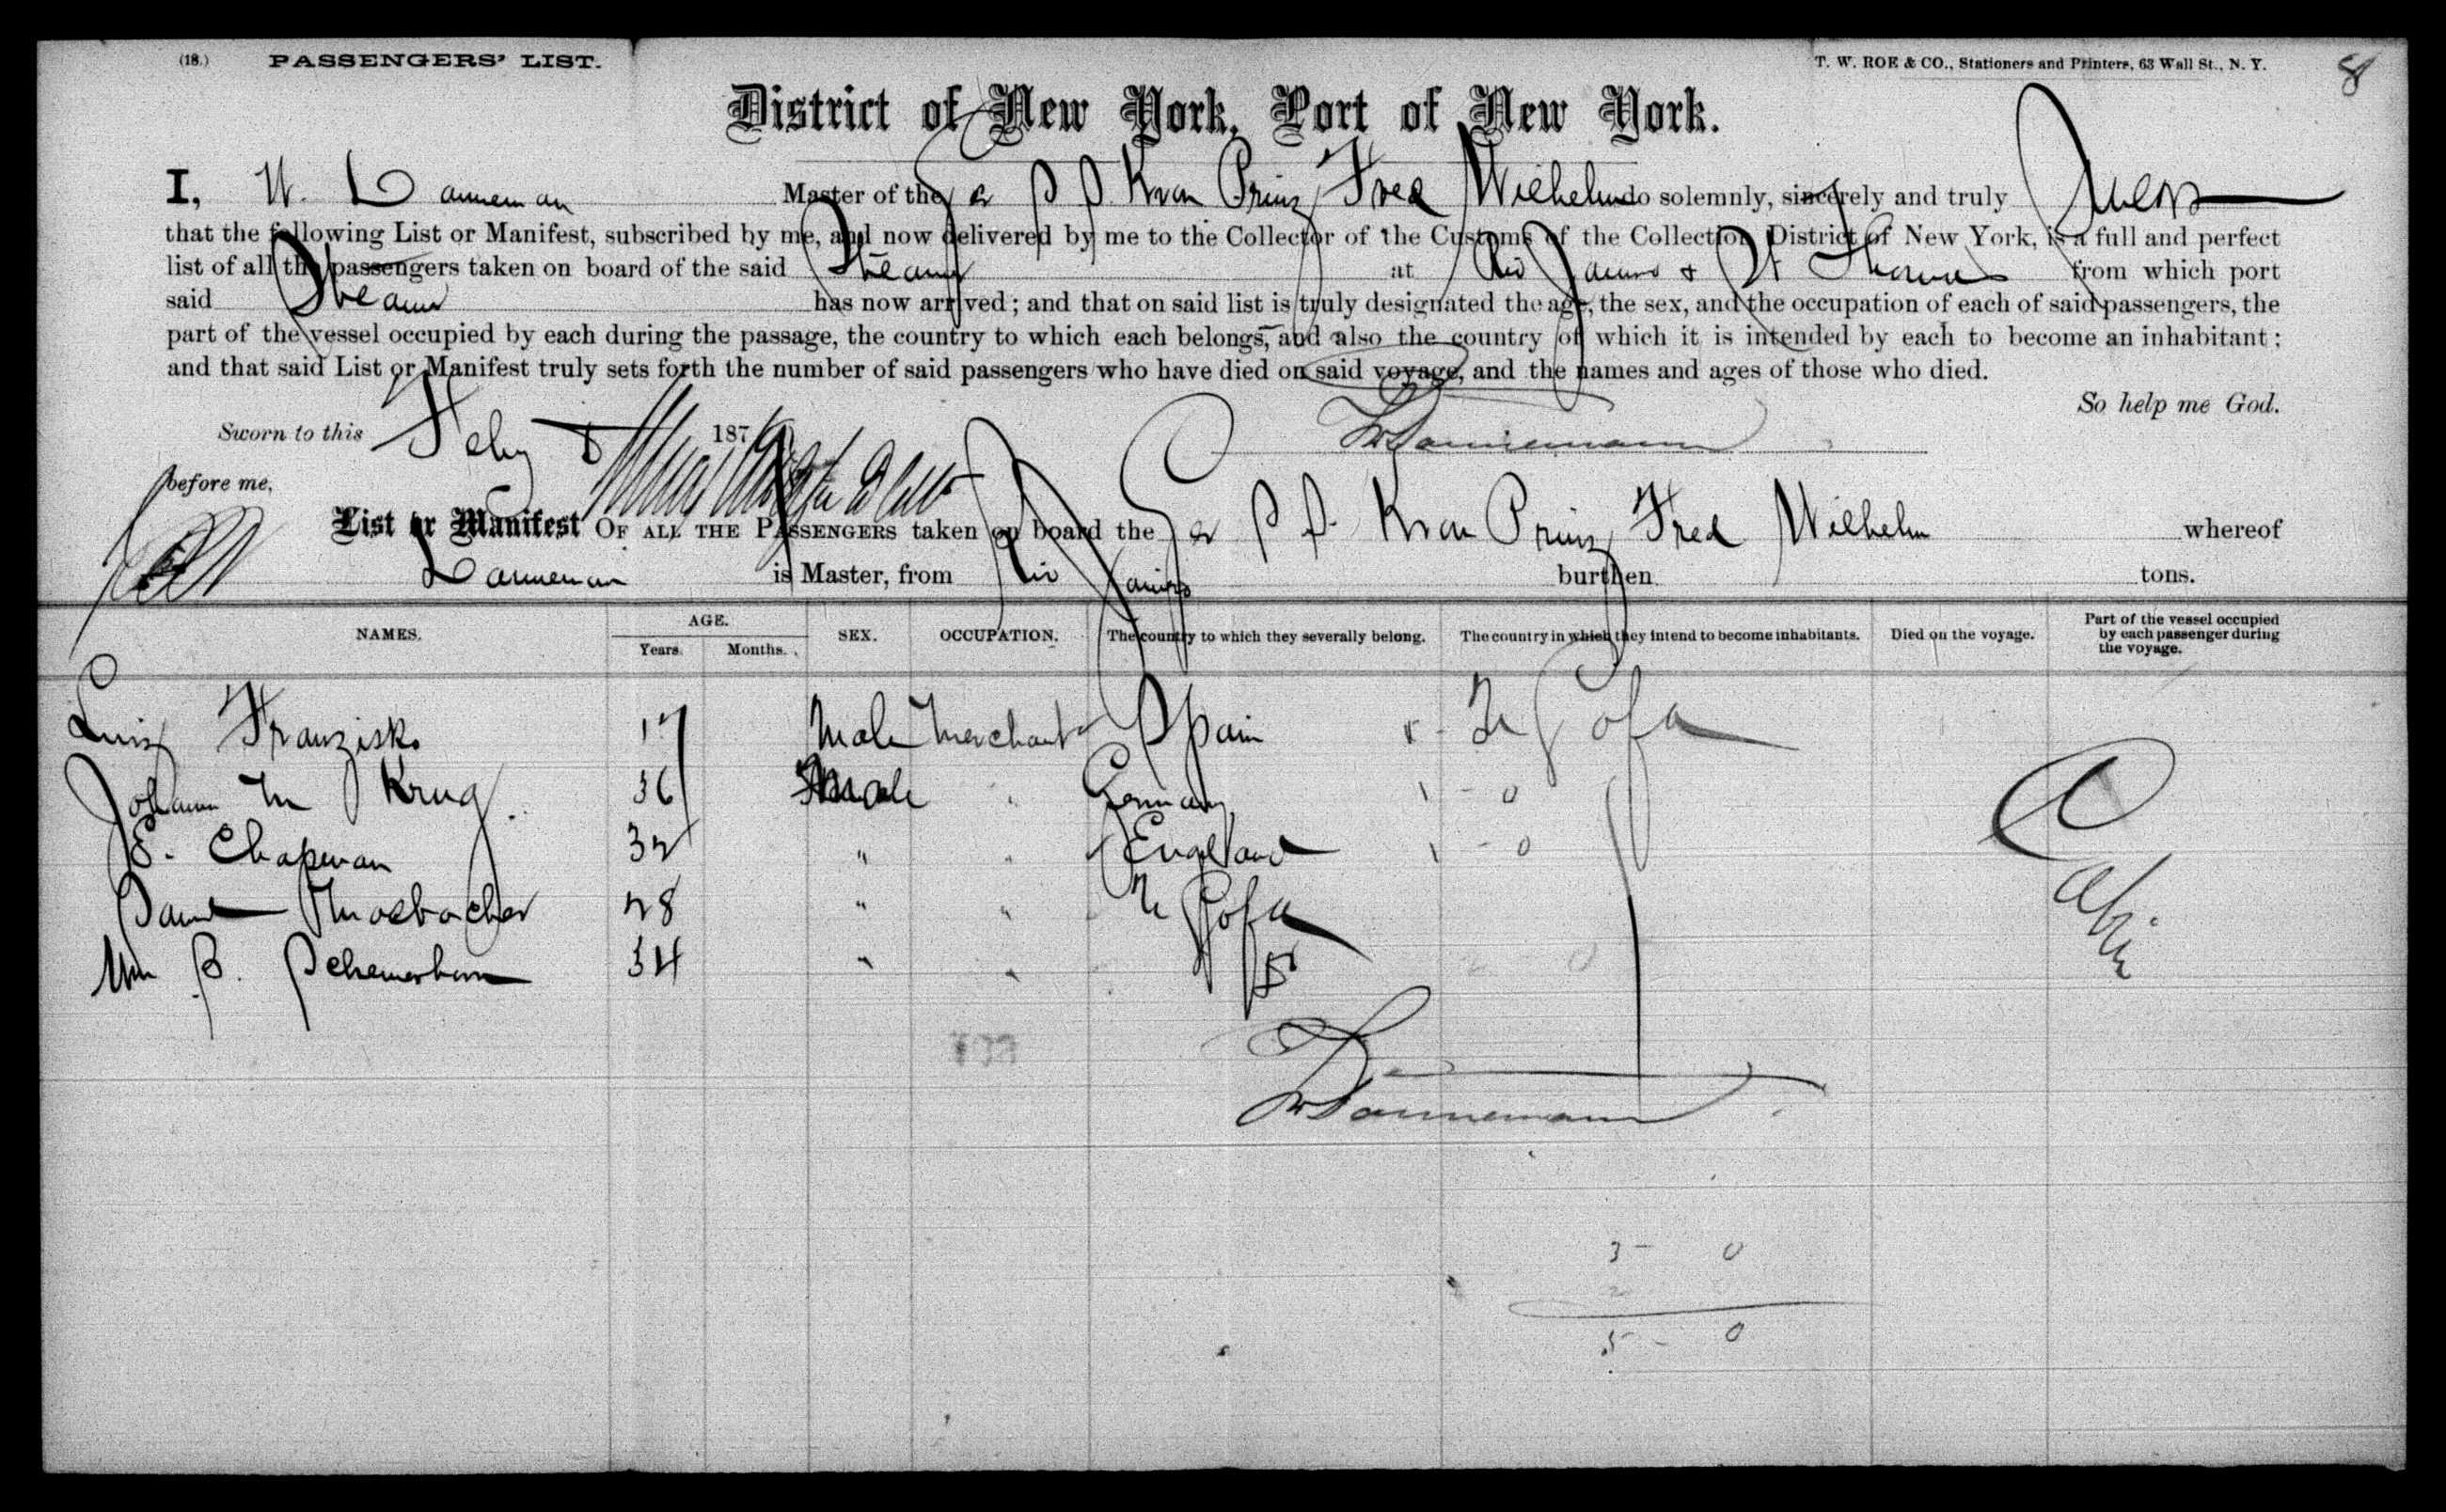 (18.) PASSENGERS' LIST. T. W. ROE & CO., Stationers and Printers, 63 Wall St., N. Y. 8
District of New York, Port of New York.
I, W. Danneman Master of the Ger S S Kron Prinz Fred Wilhelm do solemnly, sincerely and truly swear
that the following List or Manifest, subscribed by me, and now delivered by me to the Collector of the Customs of the Collection District of New York, is a full and perfect
list of all the passengers taken on board of the said Steamer at Rio Janiro & St Thomas from which port
said Steamer has now arrived; and that on said list is truly designated the age, the sex, and the occupation of each of said passengers, the
part of the vessel occupied by each during the passage, the country to which each belongs, and also the country of which it is intended by each to become an inhabitant;
and that said List or Manifest truly sets forth the number of said passengers who have died on said voyage, and the names and ages of those who died.
So help me God.
Sworn to this Feby 187 W Dannemann
before me,
List or Manifest OF ALL THE PASSENGERS taken on board the Ger S S. Kron Prinz Fred Wilhelm whereof
Danneman is Master, from Rio Janiro burthen tons.
NAMES. AGE. Years. Months. SEX. OCCUPATION. The country to which they severally belong. The country in which they intend to become inhabitants. Died on the voyage. Part of the vessel occupied by each passenger during the voyage.
Luiz Franzisko 17 Male Merchant Spain U S of A
Johann M Krug. 36 Male " Germany 1 - 0
E. Chapman 32 " " England 1 - 0 Cabin
28 " " U S of A
Wm S. Schemerhorn 34 " "
W Dannemann
3 - 0
2
5 - 0